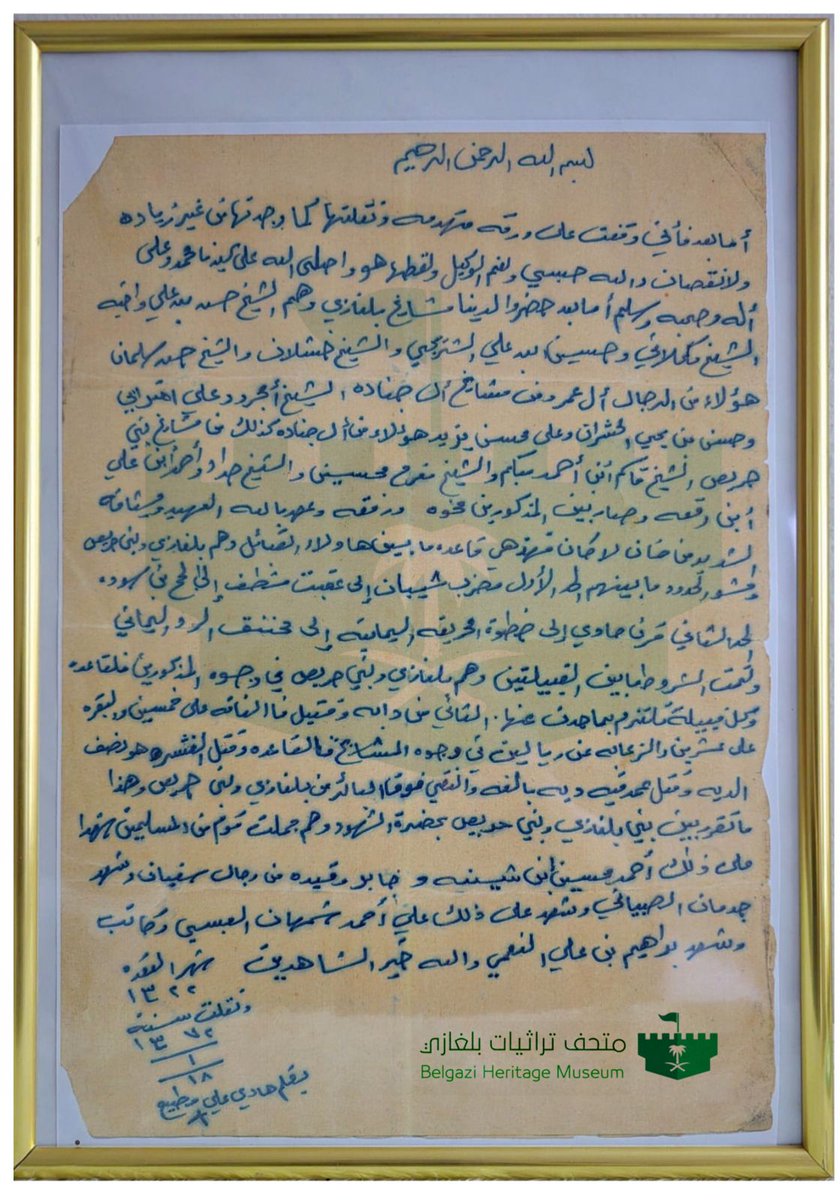 بسم الله الرحمن الرحيم
أما بعد فأني وقفت على ورقه متهدمه ونقلتها كما وجدتها من غير زياده
ولا نقصان والله حسبي ونعم الوكيل ولفظها هو واصلى الله على سيدنا محمد وعلى
أله وصحبه وسلم أما بعد حضروا لدينا مشايخ بلغازي وهم الشيخ حسن بن علي واخيه
الشيخ وحسين بن علي يحي والشيخ والشيخ حسن سلمان
هؤلاء من الرجال أل عمر ومن مشايخ أل جناده الشيخ وعلى
وحسن بن يحي وعلى محسن يزيد هؤلاء من أل جناده كذلك من مشايخ بني
حريص الشيخ قاسم ابن أحمد والشيخ مفرح محسين والشيخ وأحمد ابن علي
أبن رقعه وصار بين المذكورين ورفقه وعهد بالله العهيد وميثاقه
الشديد من خان لا كان فهذهي قاعده ما بين هاولاء القبائل وهم بلغازي وبني حريص
الحدود ما بينهم الحد الأول شيبان إلى عقبت إلى
الحد الثاني قرن هادي إلى اليمانيه إلى اليماني
وتمت الشروط ما بين القبيلتين وهم بلغازي وبني حريص في وجوه المذكورين فالقاعده
وكل قبيلة تلتزم بما حدث عنها. من دابه وقتيل فا الناقه على خمسين والبقره
على عشرين من ريالين في وجوه المشايخ فالقاعده وقتل هو نصف
الديه وقتل عمد فيه ديه بالغه فوق من بلغازي وبني حريص وهذا
ما تقرر بين بني بلغازي وبني حريص بحضرة الشهود وهم جملت قوم من المسلمين شهدا
على ذلك أحمد حسين ابن شيبنه و جابر من رجال سفيان وشهد
جدمان وشهد على ذلك علي أحمد شمهان العبسي وكاتب
وشهد براهيم بن علي النعمي والله خير الشاهدين شهر القعده
١٣٢٢
ونقلت سنة
١٣٧٢
١
١٨
بقلم هادي علي مطيع
متحف تراثيات بلغازي
Belgazi Heritage Museum